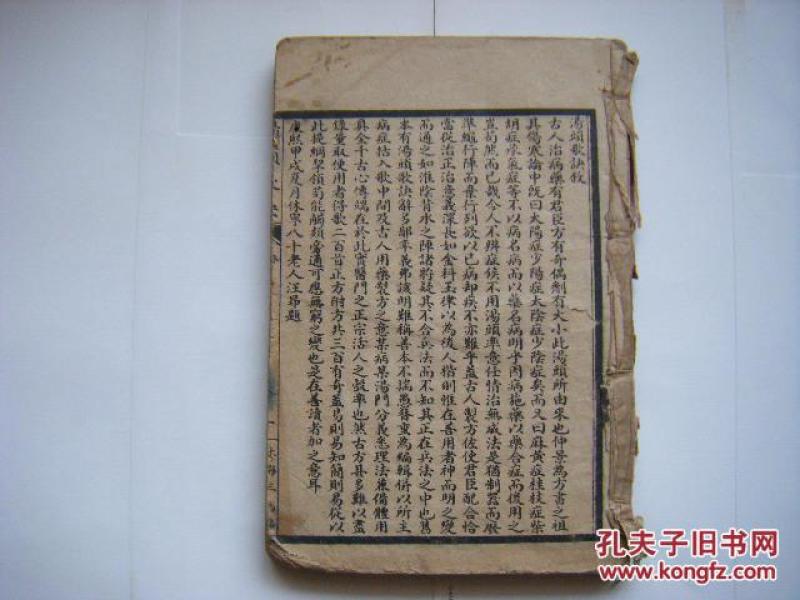 湯頭歌訣敘
古人治病藥有君臣方有奇偶劑有大小此湯頭所由來也仲景為方書之祖
其傷寒論中既曰太陽症少陽症太陰症少陰症矣而又曰麻黃症桂枝症柴
胡症承氣症等不以病名病而以藥名病明乎因病施藥以藥合症而後用之
豈苟然而已哉今人不辨症候不用湯頭率意任情治無成法是猶制器而廢
準繩行陣而棄行列欲以已病却疾不亦難乎蓋古人製方佐使君臣配合恰
當從治正治意義深長如金科玉律以為後人楷則惟在善用者神而明之變
而通之如淮陰背水之陣諸將疑其不合兵法而不知其正在兵法之中也舊
本有湯頭歌訣辭多鄙率義弗該明難稱善本不揣愚瞽重為編輯併以所主
病症括入歌中間及古人用藥製方之意某病某湯門分義悉理法兼備體用
具全千古心傳端在於此實醫門之正宗活人之彀率也然古方具多難以盡
錄量取便用者得歌二百首正方附方共三百有奇蓋易則易知簡則易從以
此提綱挈領苟能觸類旁通可應無窮之變也是在善讀者加之意耳
康熙甲戌夏月休寧八十老人汪昂題
孔夫子旧书网
www.kongfz.com